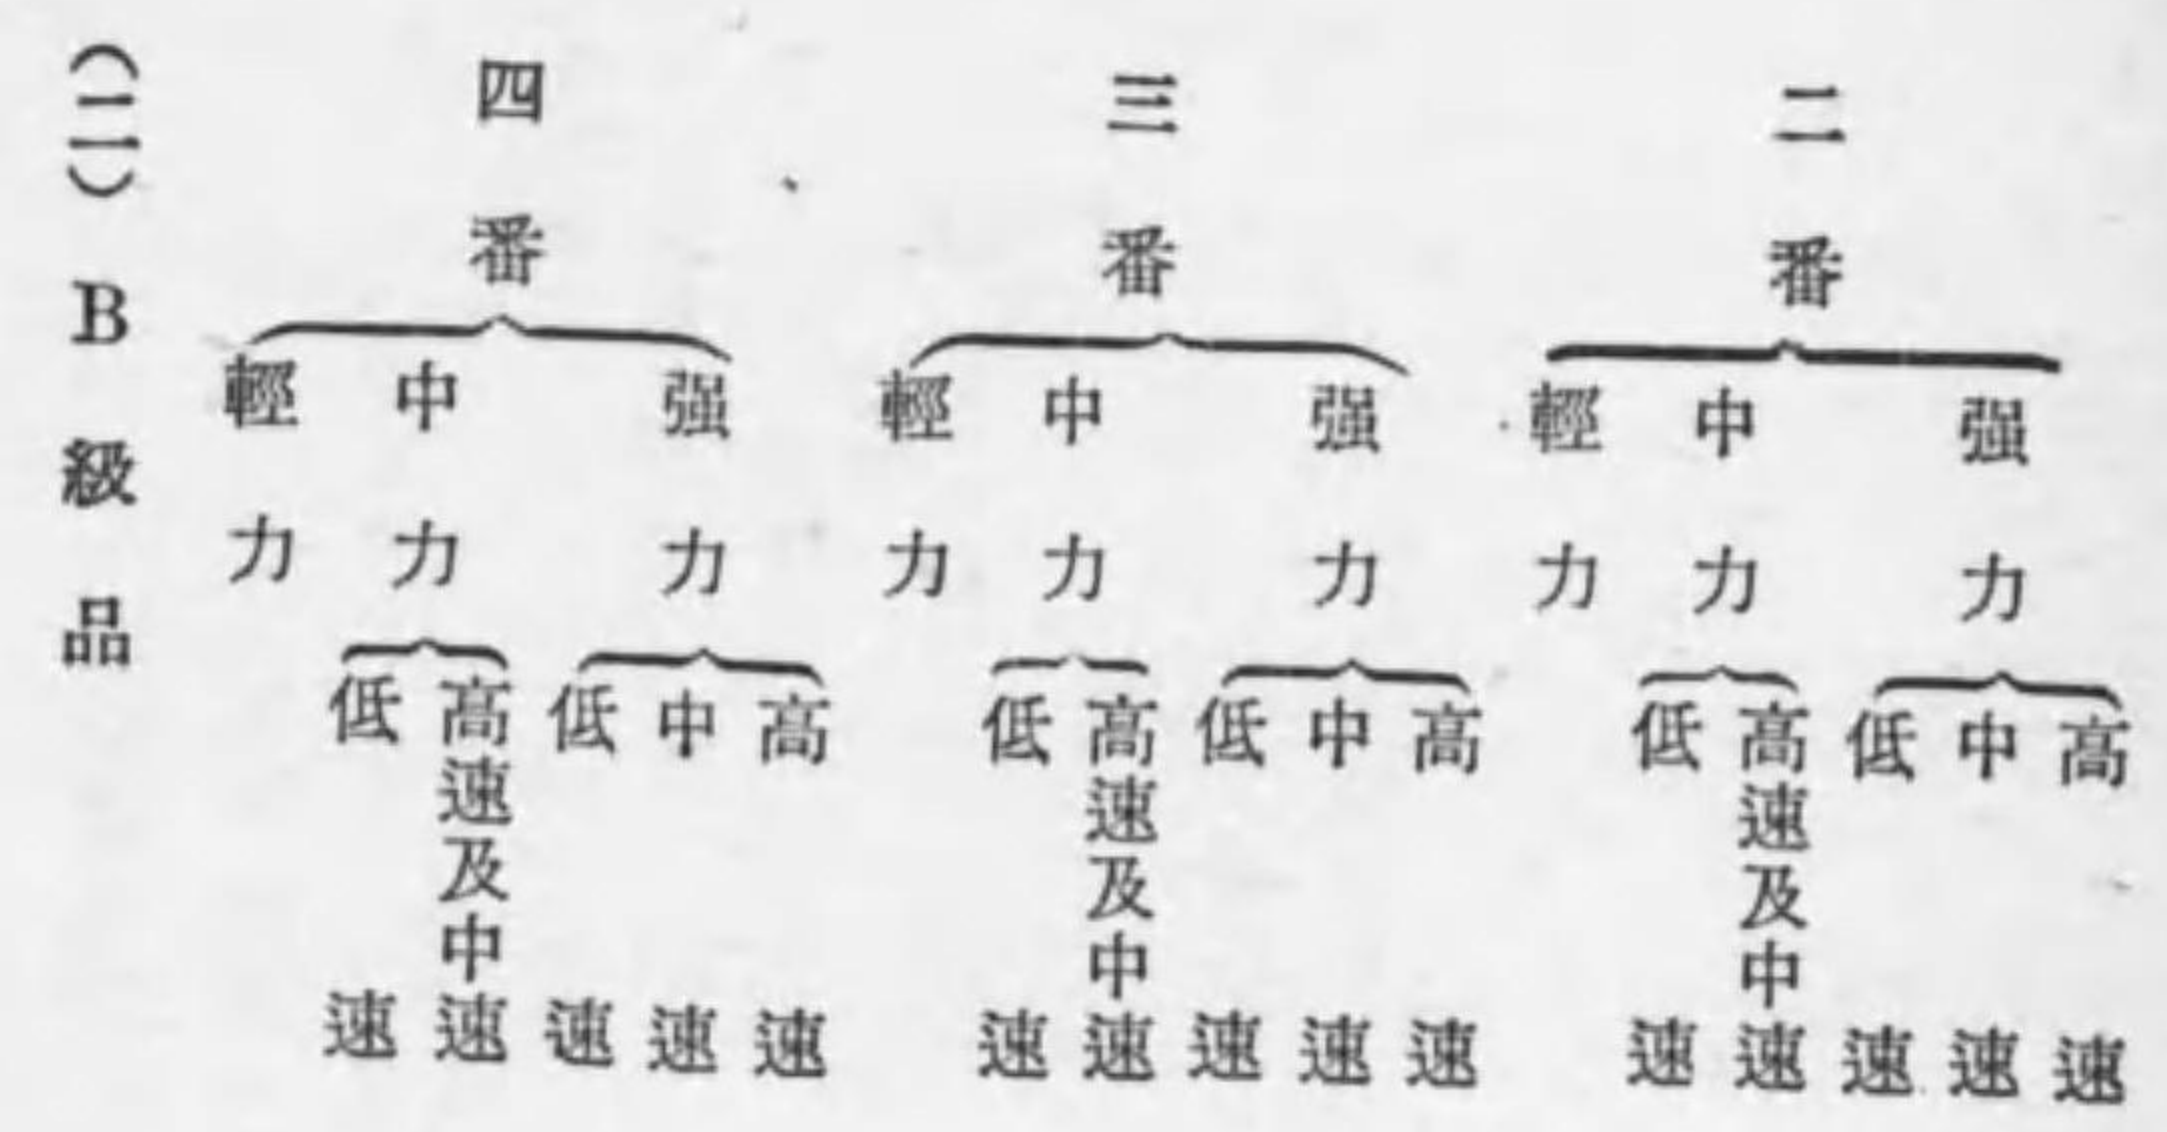 二番
强力
高速
中速
低速
中力
高速及中速
低速
輕力
三番
强力
高速
中速
低速
中力
高速及中速
低速
輕力
四番
强力
高速
中速
低速
中力
高速及中速
低速
輕力
(二)B級品